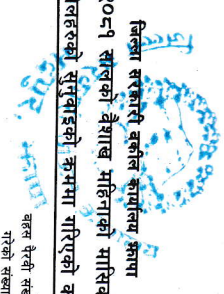 जिल्ला सरकारी वकील कार्यालय झापा
२०८१ सालको वैशाख महिनाको मासिक
सुनुवाइको क्रममा गरिएको
बहस पैरवी
गरेको संख्या